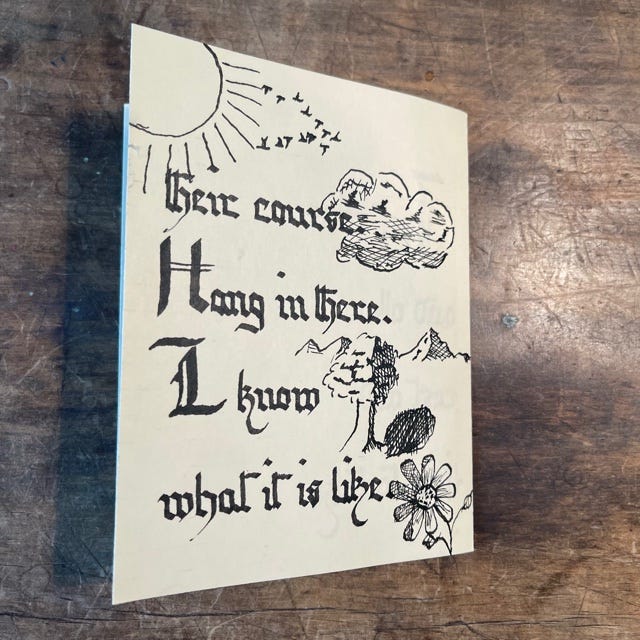 their course.
Hang in there.
I know
what it is like.